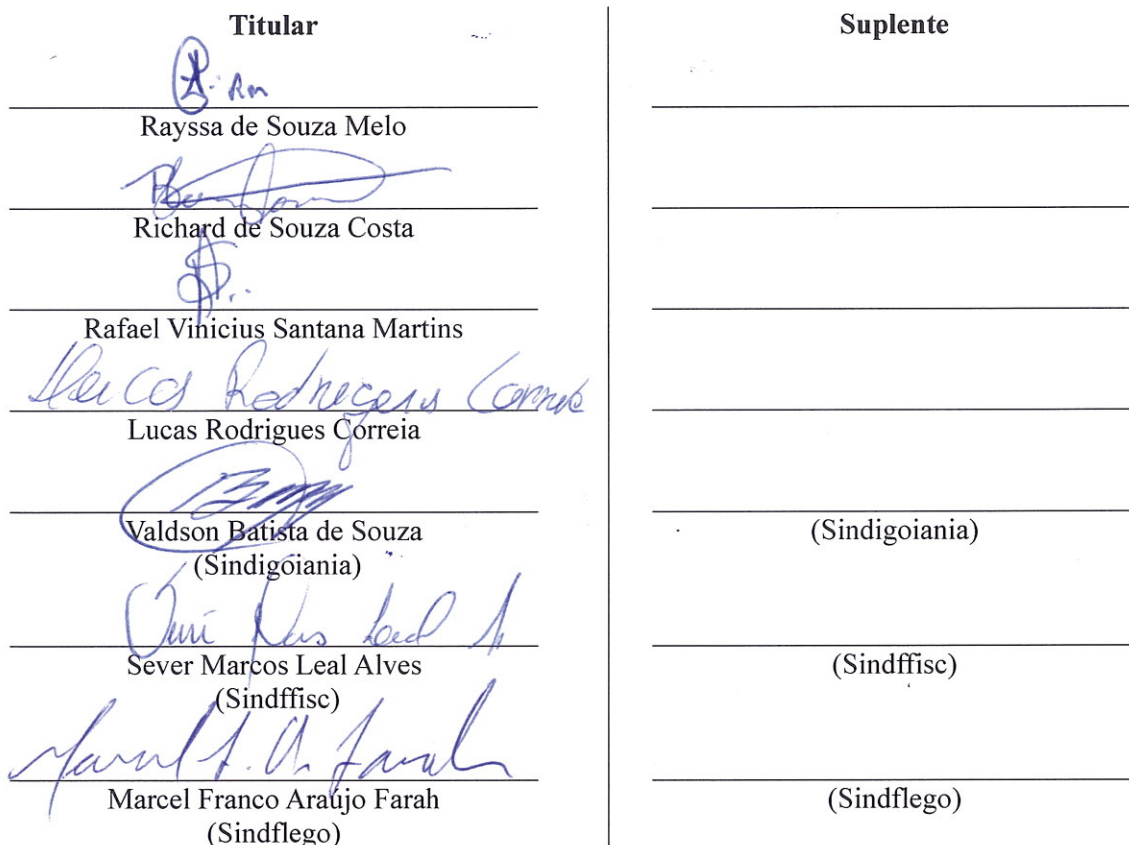 Titular
Rm
Rayssa de Souza Melo
Richard de Souza Costa
Rafael Vinicius Santana Martins
Lucas Rodrigues Correia
Lucas Rodrigues Correia
Valdson Batista de Souza
(Sindigoiania)
Sever Marcos Leal Alves
(Sindffisc)
Marcel F. A. Farah
Marcel Franco Araújo Farah
(Sindflego)
Suplente
(Sindigoiania)
(Sindffisc)
(Sindflego)